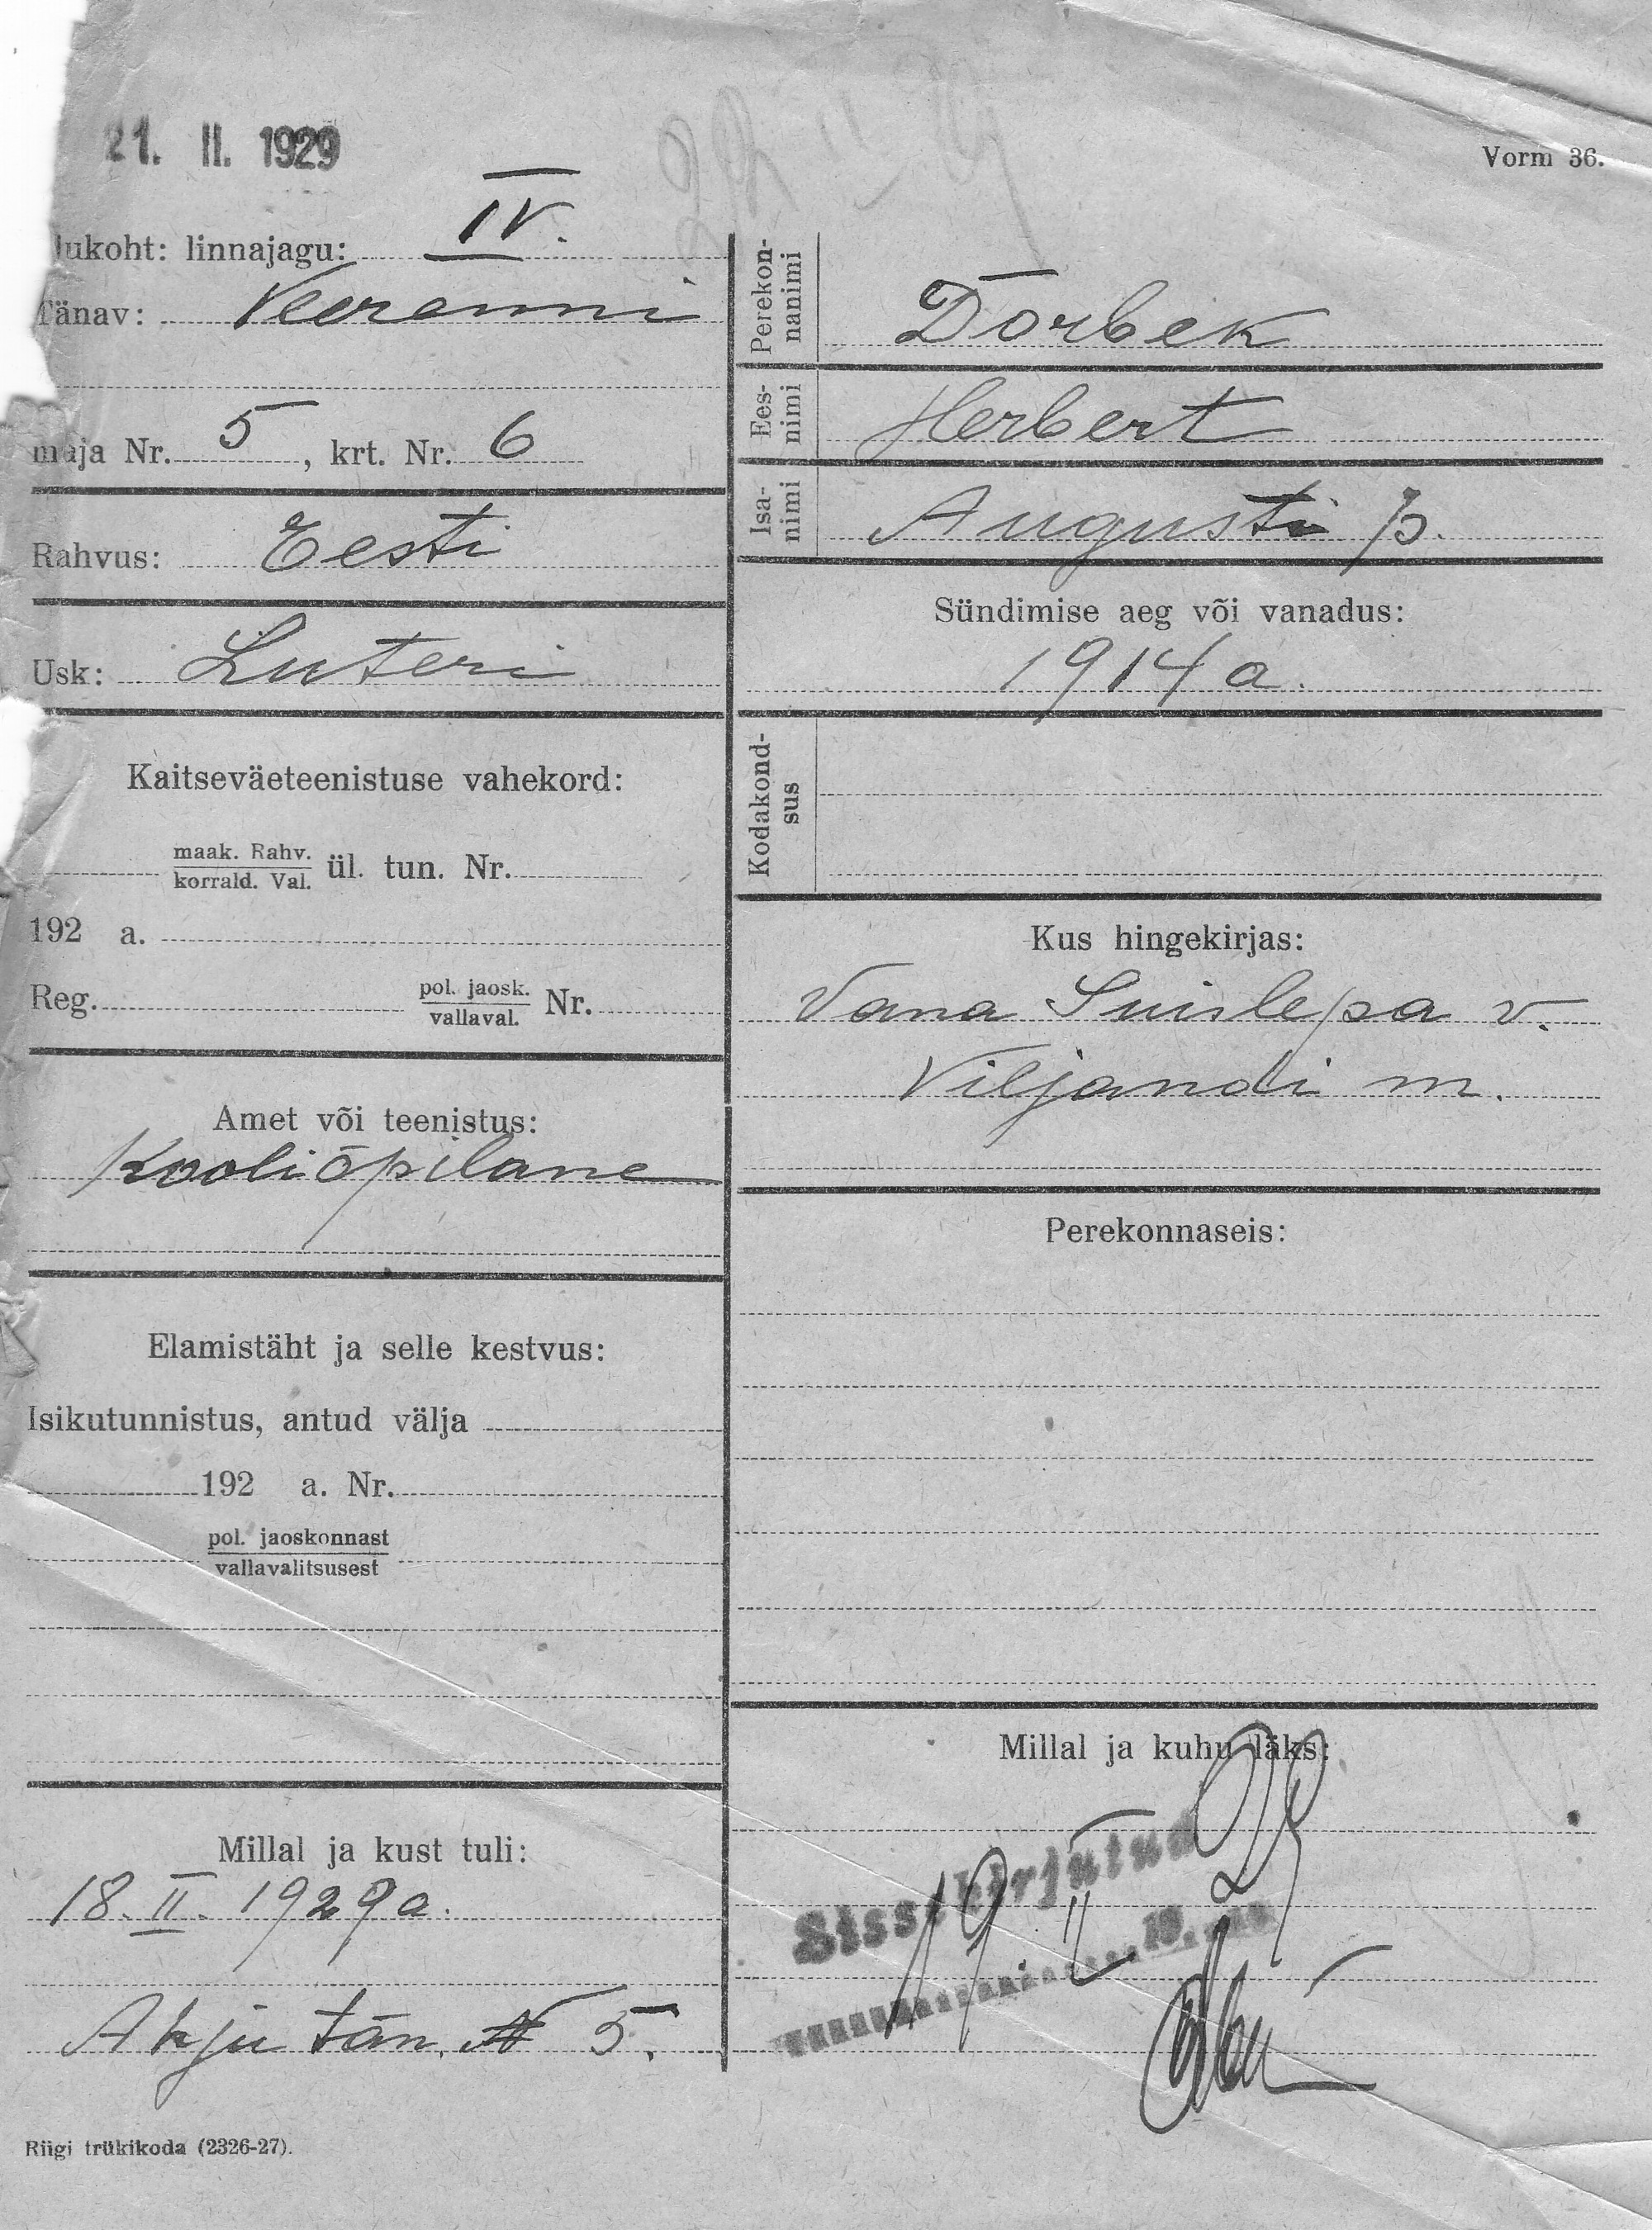 21. II. 1929
Vorm 36.
lukoht: linnajagu: IV.
Tänav: Veerenni
maja Nr. 5, krt. Nr. 6
Rahvus: Eesti
Usk: Luteri
Kaitseväeteenistuse vahekord:
maak. Rahv.
korrald. Val.
ül. tun. Nr.
192 a.
Reg. pol. jaosk.
vallaval. Nr.
Amet või teenistus:
Kooliõpilane
Elamistäht ja selle kestvus:
Isikutunnistus, antud välja
192 a. Nr.
pol. jaoskonnast
vallavalitsusest
Millal ja kust tuli:
18. II. 1929 a.
Ahju tän. № 5.
Riigi trükikoda (2326-27).
Perekon-
nanimi
Dorbek
Ees-
nimi
Herbert
Isa-
nimi
Augusti p.
Sündimise aeg või vanadus:
1914 a.
Kodakond-
sus
Kus hingekirjas:
Vana Suislepa v.
Viljandi m.
Perekonnaseis:
Millal ja kuhu läks:
Sissekirjutud
19. II 29
19